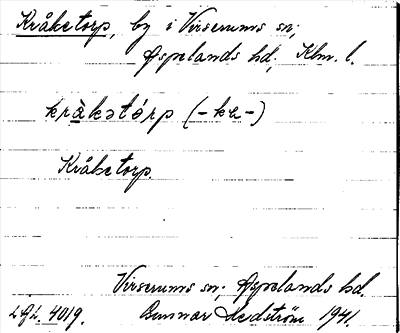 Kråketorp, by i Virserums sn,
Aspelands hd, Klm. l.
kràkətórp (-ke-)
Kråketorp.
Virserums sn, Aspelands hd.
4019. Gunnar Hedström 1941.